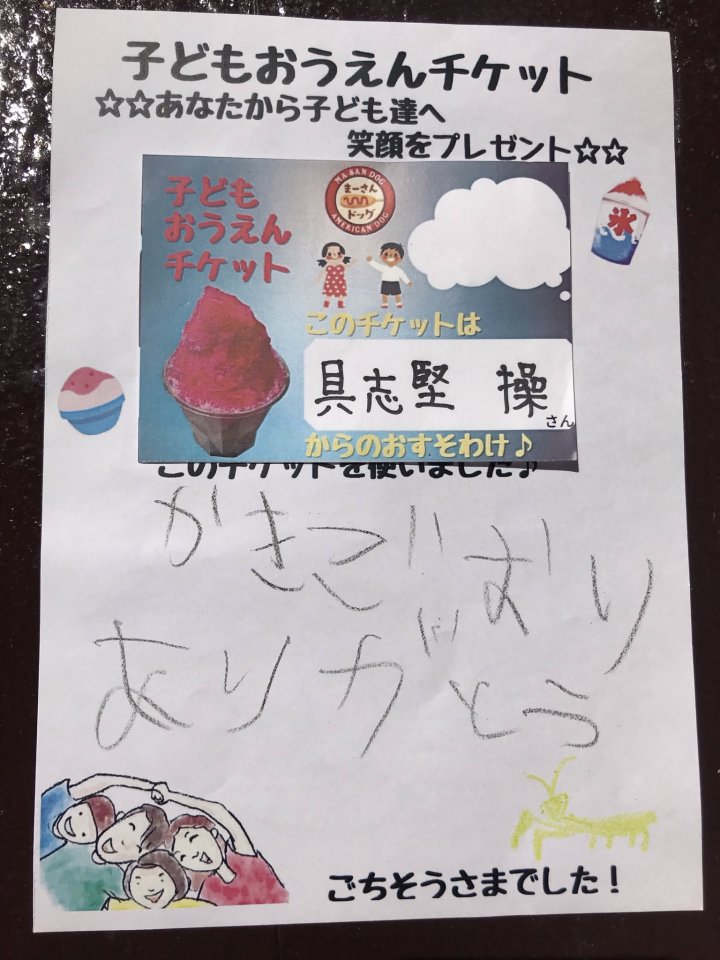 子どもおうえんチケット
☆☆あなたから子ども達へ
笑顔をプレゼント☆☆
子ども
おうえん
チケット
MA SAN DOG
まーさん
ドッグ
AMERICAN DOG
氷
このチケットは
具志堅 操
さん
からのおすそわけ♪
このチケットを使いました♪
かきごおり
ありがとう
ごちそうさまでした!